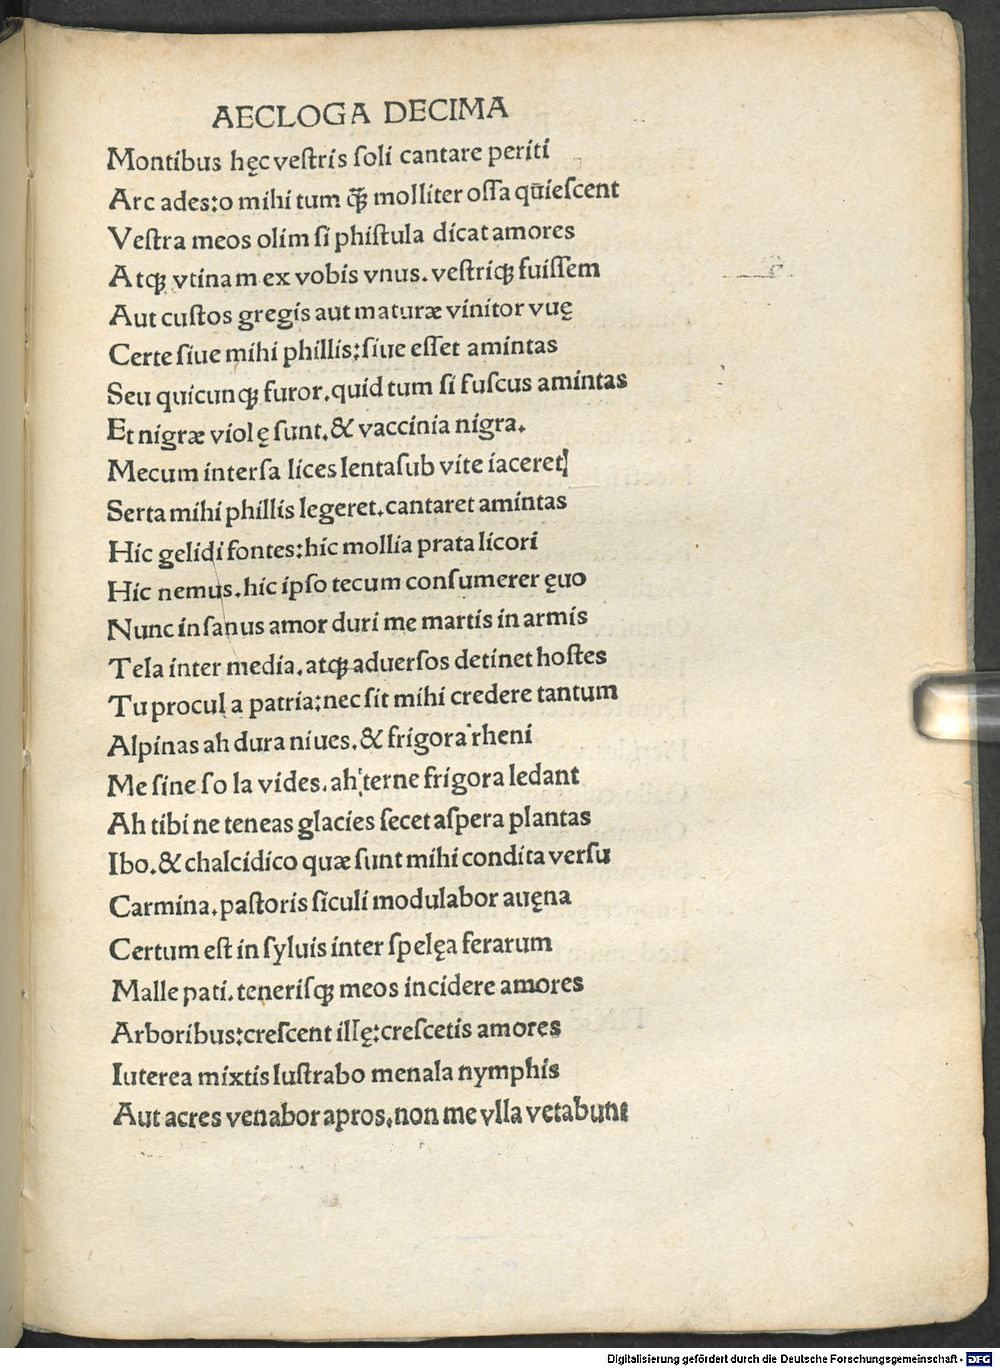 AECLOGA DECIMA
Montibus hęc veſtris ſoli cantare periti
Arc ades:o mihi tum ꝙ̃ molliter oſſa qu̅ieſcent
Veſtra meos olim ſi phiſtula dicat amores
Atqꝫ vtinam ex vobis vnus. veſtriqꝫ fuiſſem
Aut cuſtos gregis aut maturæ vinitor vuę
Certe ſiue mihi phillis:ſiue eſſet amintas
Seu quicunqꝫ furor. quid tum ſi fuſcus amintas
Et nigræ violę ſunt. & vaccinia nigra.
Mecum interſa lices lentaſub vite iaceret
Serta mihi phillis legeret. cantaret amintas
Hic gelidi fontes:hic mollia prata licori
Hic nemus. hic ipſo tecum conſumerer ęuo
Nunc inſanus amor duri me martis in armis
Tela inter media. atqꝫ aduerſos detinet hoſtes
Tu procul a patria:nec ſit mihi credere tantum
Alpinas ah dura niues. & frigora rheni
Me ſine ſo la vides. ah terne frigora ledant
Ah tibi ne teneas glacies ſecet aſpera plantas
Ibo. & chalcidico quæ ſunt mihi condita verſu
Carmina. paſtoris ſiculi modulabor auęna
Certum eſt in ſyluis inter ſpelęa ferarum
Malle pati. teneriſqꝫ meos incidere amores
Arboribus:creſcent illę:creſcetis amores
Iuterea mixtis luſtrabo menala nymphis
Aut acres venabor apros. non me vlla vetabunt
Digitalisierung gefördert durch die Deutsche Forschungsgemeinschaft - DFG